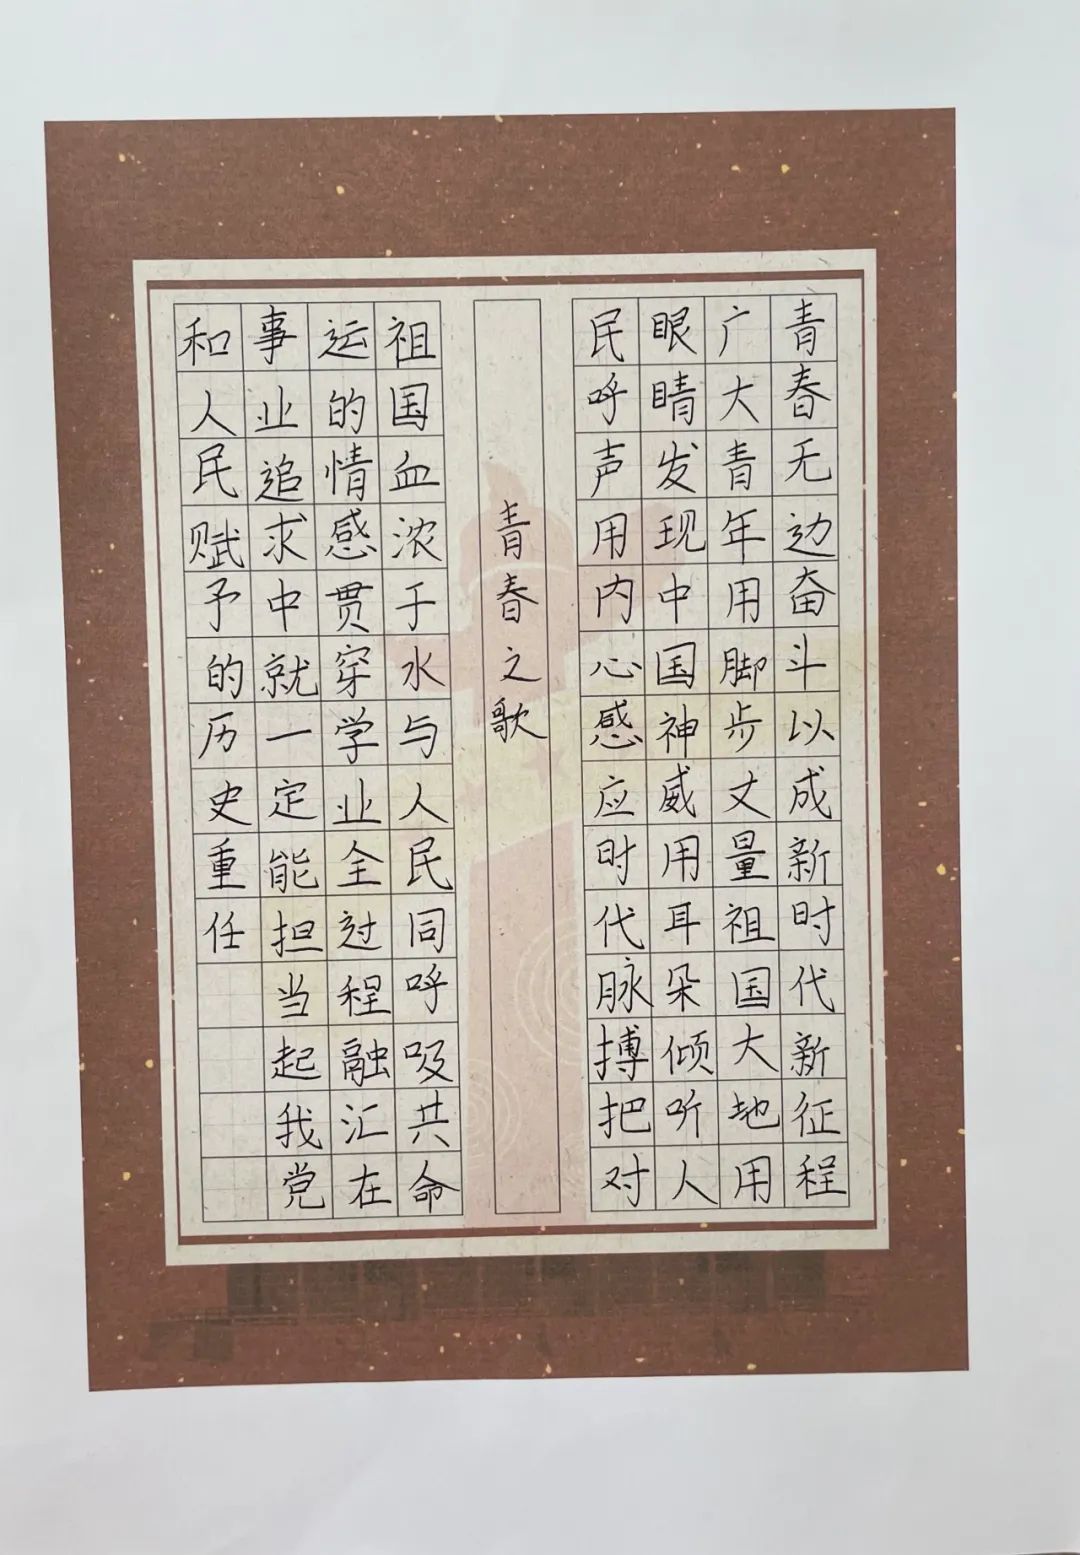 青春无边奋斗以成新时代新征程
广大青年用脚步丈量祖国大地用
眼睛发现中国神威用耳朵倾听人
民呼声用内心感应时代脉搏把对
青春之歌
祖国血浓于水与人民同呼吸共命
运的情感贯穿学业全过程融汇在
事业追求中就一定能担当起我党
和人民赋予的历史重任